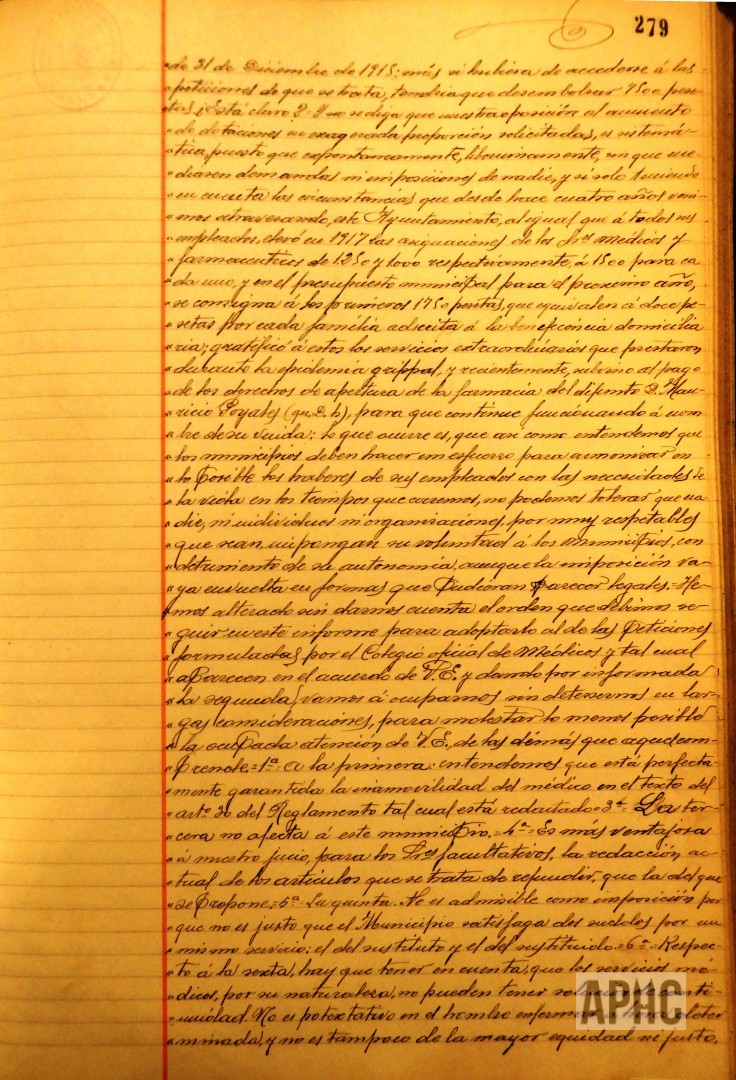 279
"de 31 de Diciembre de 1915; más si hubiera de accederse á las
"peticiones de que se trata, tendria que desembolsar 1500 pese-
tas ¿Está claro? Y no se diga que nuestra oposición al aumento
"de dotaciones en exagerada proporción solicitadas, es sistemá-
"tica, puesto que expontaneamente, sin que me-
"diaren demandas ni imposiciones de nadie, y si solo teniendo
"en cuenta las circunstancias que desde hace cuatro años veni-
"mos atravesando, este Ayuntamiento, al igual que á todos sus
"empleados, elevó en 1917 las asignaciones de los Sres Médicos y
"farmaceuticos de 1250 y 1000 respectivamente, á 1500 para ca-
"da uno, y en el presupuesto municipal para el proximo año,
"se consigna á los primeros 1750 pesetas, que equivalen á doce pe-
"setas por cada familia adscrita á la beneficencia domicilia
"ria; gratificó á estos los servicios extraordinarios que prestaron
"durante la epidemia grippal, y recientemente, subvino al pago
"de los derechos de apertura de la farmacia del difunto D. Mau-
"ricio Poyales (q. e. D. h), para que continue funcionando á nom-
"bre de su viuda; lo que ocurre es, que asi como entendemos que
"los municipios deben hacer un esfuerzo para armonizar en
"lo posible los haberes de sus empleados con las necesidades de
"la vida en los tiempos que corremos, no podemos tolerar que na-
"die, ni individuos ni organizaciones, por muy respetables
"que sean, impongan su voluntad á los municipios, con
"detrimento de su autonomia, aunque la imposición va-
"ya envuelta en formas que pudieran parecer legales.=He-
"mos alterado sin darnos cuenta el orden que debimos se-
"guir en este informe para adoptarlo al de las peticiones
"formuladas por el Colegio oficial de Médicos y tal cual
"aparecen en el acuerdo de V.E. y dando por informada
"la segunda, vamos á ocuparnos sin detenernos en lar-
"gas consideraciones, para molestar lo menos posible
"la ocupada atención de V.E, de las démás que aquel com-
"prende.=1ª= A la primera: entendemos que está perfecta-
"mente garantida la inamovilidad del médico en el texto del
"artº 30 del Reglamento tal cual está redactado=3ª= La ter-
"cera no afecta á este municipio.=4ª= Es más ventajosa
"á nuestro juicio, para los Sres facultativos, la redacción ac-
"tual de los artículos que se trata de refundir, que la del que
"se propone.=5ª= La quinta. No es admisible como imposición por
"que no es justo que el Municipio satisfaga dos sueldos por un
"mismo servicio: el del sustituto y el del sustituido.=6ª= Respec-
"to á la sexta, hay que tener en cuenta, que los servicios mé-
"dicos, por su naturaleza, no pueden tener solución de conti-
"nuidad. No es potextativo en el hombre enfermar á hora deter
"minada, y no es tampoco de la mayor equidad ni justo,
APHC